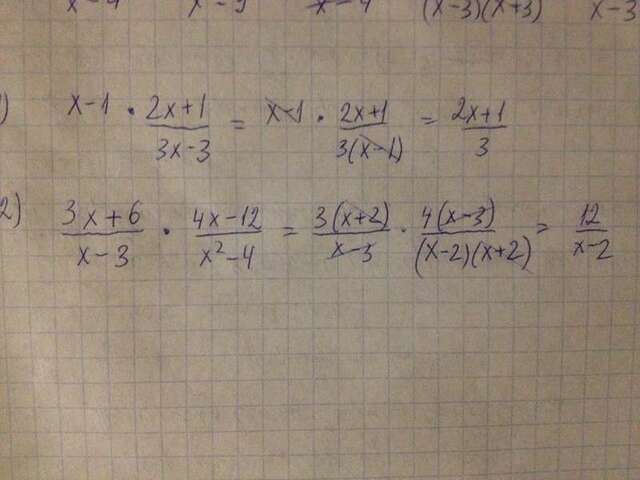 x-4 x-5 x-4 (x-3)(x+3) x-3
1)
x-1 · (2x+1)/(3x-3) = x-1 · (2x+1)/(3(x-1)) = (2x+1)/3
2)
(3x+6)/(x-3) · (4x-12)/(x²-4) = (3(x+2))/(x-3) · (4(x-3))/((x-2)(x+2)) = 12/(x-2)